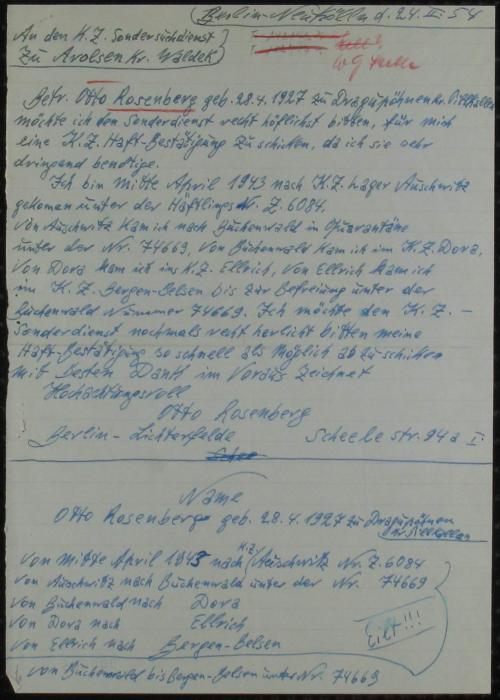 Berlin-Neukölln d. 24. II. 54
An den K.Z. Sondersuchdienst
Zu Arolsen Kr. Waldek
Betr. Otto Rosenberg geb. 28.4.1927 zu Dragupöhnen kr. Pillkallen
möchte ich den Sonderdienst recht höflichst bitten, für mich
eine K.Z. Haft-Bestätigung zu schicken, da ich sie sehr
dringend benötige.
Ich bin Mitte April 1943 nach K.Z. Lager Auschwitz
gekomen unter der Häftlings Nr. Z. 6084.
Von Auschwitz kam ich nach Buchenwald in Quarantäne
unter der Nr. 74669, von Buchenwald kam ich im K.Z. Dora,
von Dora kam ich ins K.Z. Ellrich, von Ellrich kam ich
im K.Z. Bergen-Belsen bis zur Befreiung unter der
Buchenwald Nummer 74669. Ich möchte den K.Z. -
Sonderdienst nochmals recht herlicht bitten meine
Haft-Bestätigung so schnell als Möglich ab zu schicken
mit besten Dank im Voraus zeichnet
Hochachtungsvoll
Otto Rosenberg
Berlin-Lichterfelde Scheele str. 94a I.
Name
Otto Rosenberg geb. 28.4.1927 zu Dragupöhnen
kr. Pillkallen
Von Mitte April 1943 nach K.Z. Auschwitz Nr. Z. 6084
von Auschwitz nach Buchenwald unter der Nr. 74669
von Buchenwald nach Dora
von Dora nach Ellrich
von Ellrich nach Bergen-Belsen
Eilt!!!
von Buchenwald bis Bergen-Belsen unter Nr. 74669